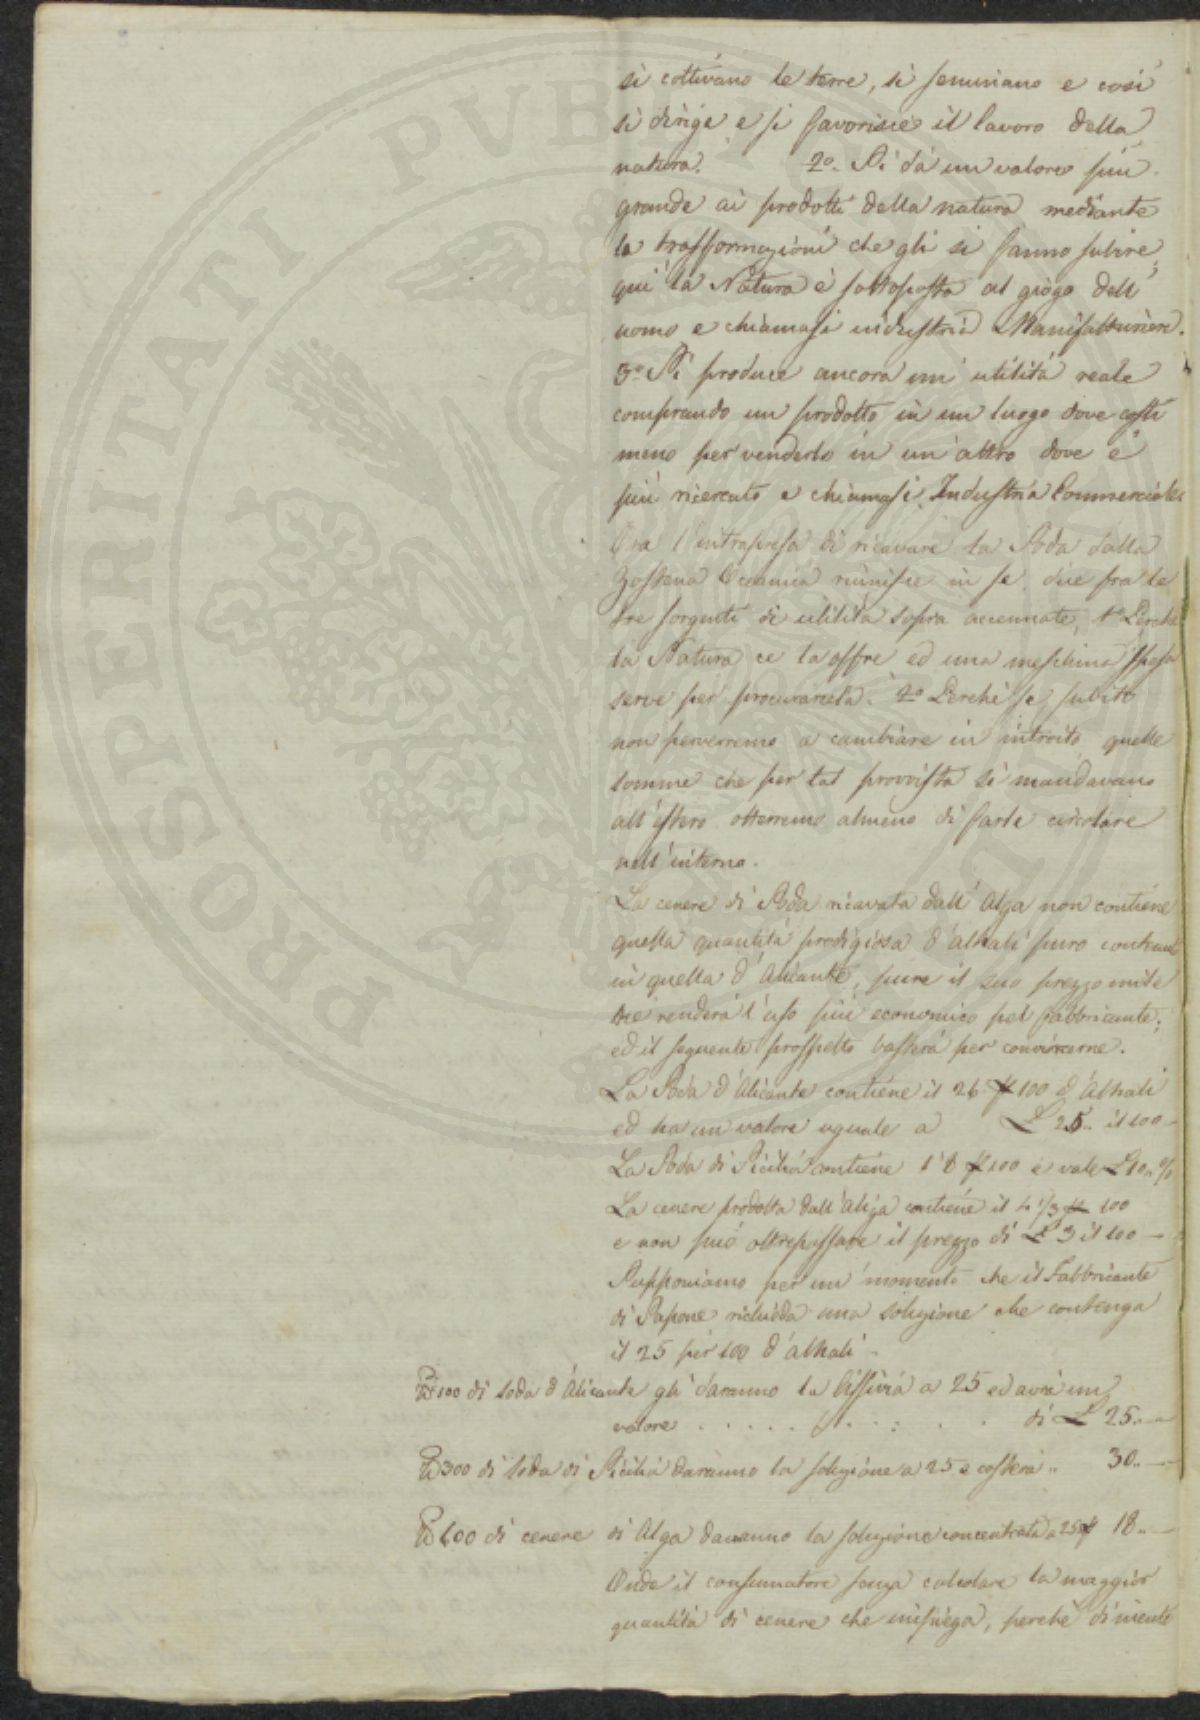 si coltivano le terre, si seminano e così
si dirige e si favorisce il lavoro della
natura. 2º. Si dà un valore più
grande ai prodotti della natura mediante
le trasformazioni che gli si fanno subire;
qui la Natura è sottoposta al giogo dell'
uomo e chiamasi industria Manifatturiera.
3º. Si produce ancora un' utilità reale
comprando un prodotto in un luogo dove costi
meno per venderlo in un' altro dove è
più ricercato e chiamasi Industria Commerciale.
Ora l'intrapresa di ricavare la Soda dalla
Zostera Oceanica riunisce in se due fra le
tre sorgenti di utilità sopra accennate, 1º Perchè
la Natura ce la offre ed una meschina spesa
serve per procurarcela. 2º Perchè se subito
non perverremo a cambiare in introito quelle
somme che per tal provvista si mandavano
all'estero otterremo almeno di farle circolare
nell'interno.
La cenere di Soda ricavata dall' Alga non contiene
quella quantità prodigiosa d'alkali puro
in quella d'Alicante, pure il suo prezzo mite
ne renderà l'uso più economico pel fabbricante;
ed il seguente prospetto basterà per convincerne.
La Soda d'Alicante contiene il 26 100 d'alkali
ed ha un valore uguale a £ 25.. il 100 -
La Soda di Sicilia contiene l'8 100 e vale £ 10.. %
La cenere prodotta dall'Aliga contiene il 4 1/3 100
e non può oltrepassare il prezzo di £ 3 il 100 -
Supponiamo per un' momento che il Fabbricante
di Sapone richieda una soluzione che contenga
il 25 per 100 d'alkali -
100 di soda d'Alicante gli daranno la lissivia a 25 ed avrà un
valore . . . . . . . . . . di £ 25.. -
300 di soda di Sicilia daranno la soluzione a 25 e costerà .. 30.. -
600 di cenere di Alga daranno la soluzione concentrata a 25 18.. -
Onde il consumatore senza calcolare la maggior
quantità di cenere che impiega, perchè di niente
PROSPERITATI PUBLICAE